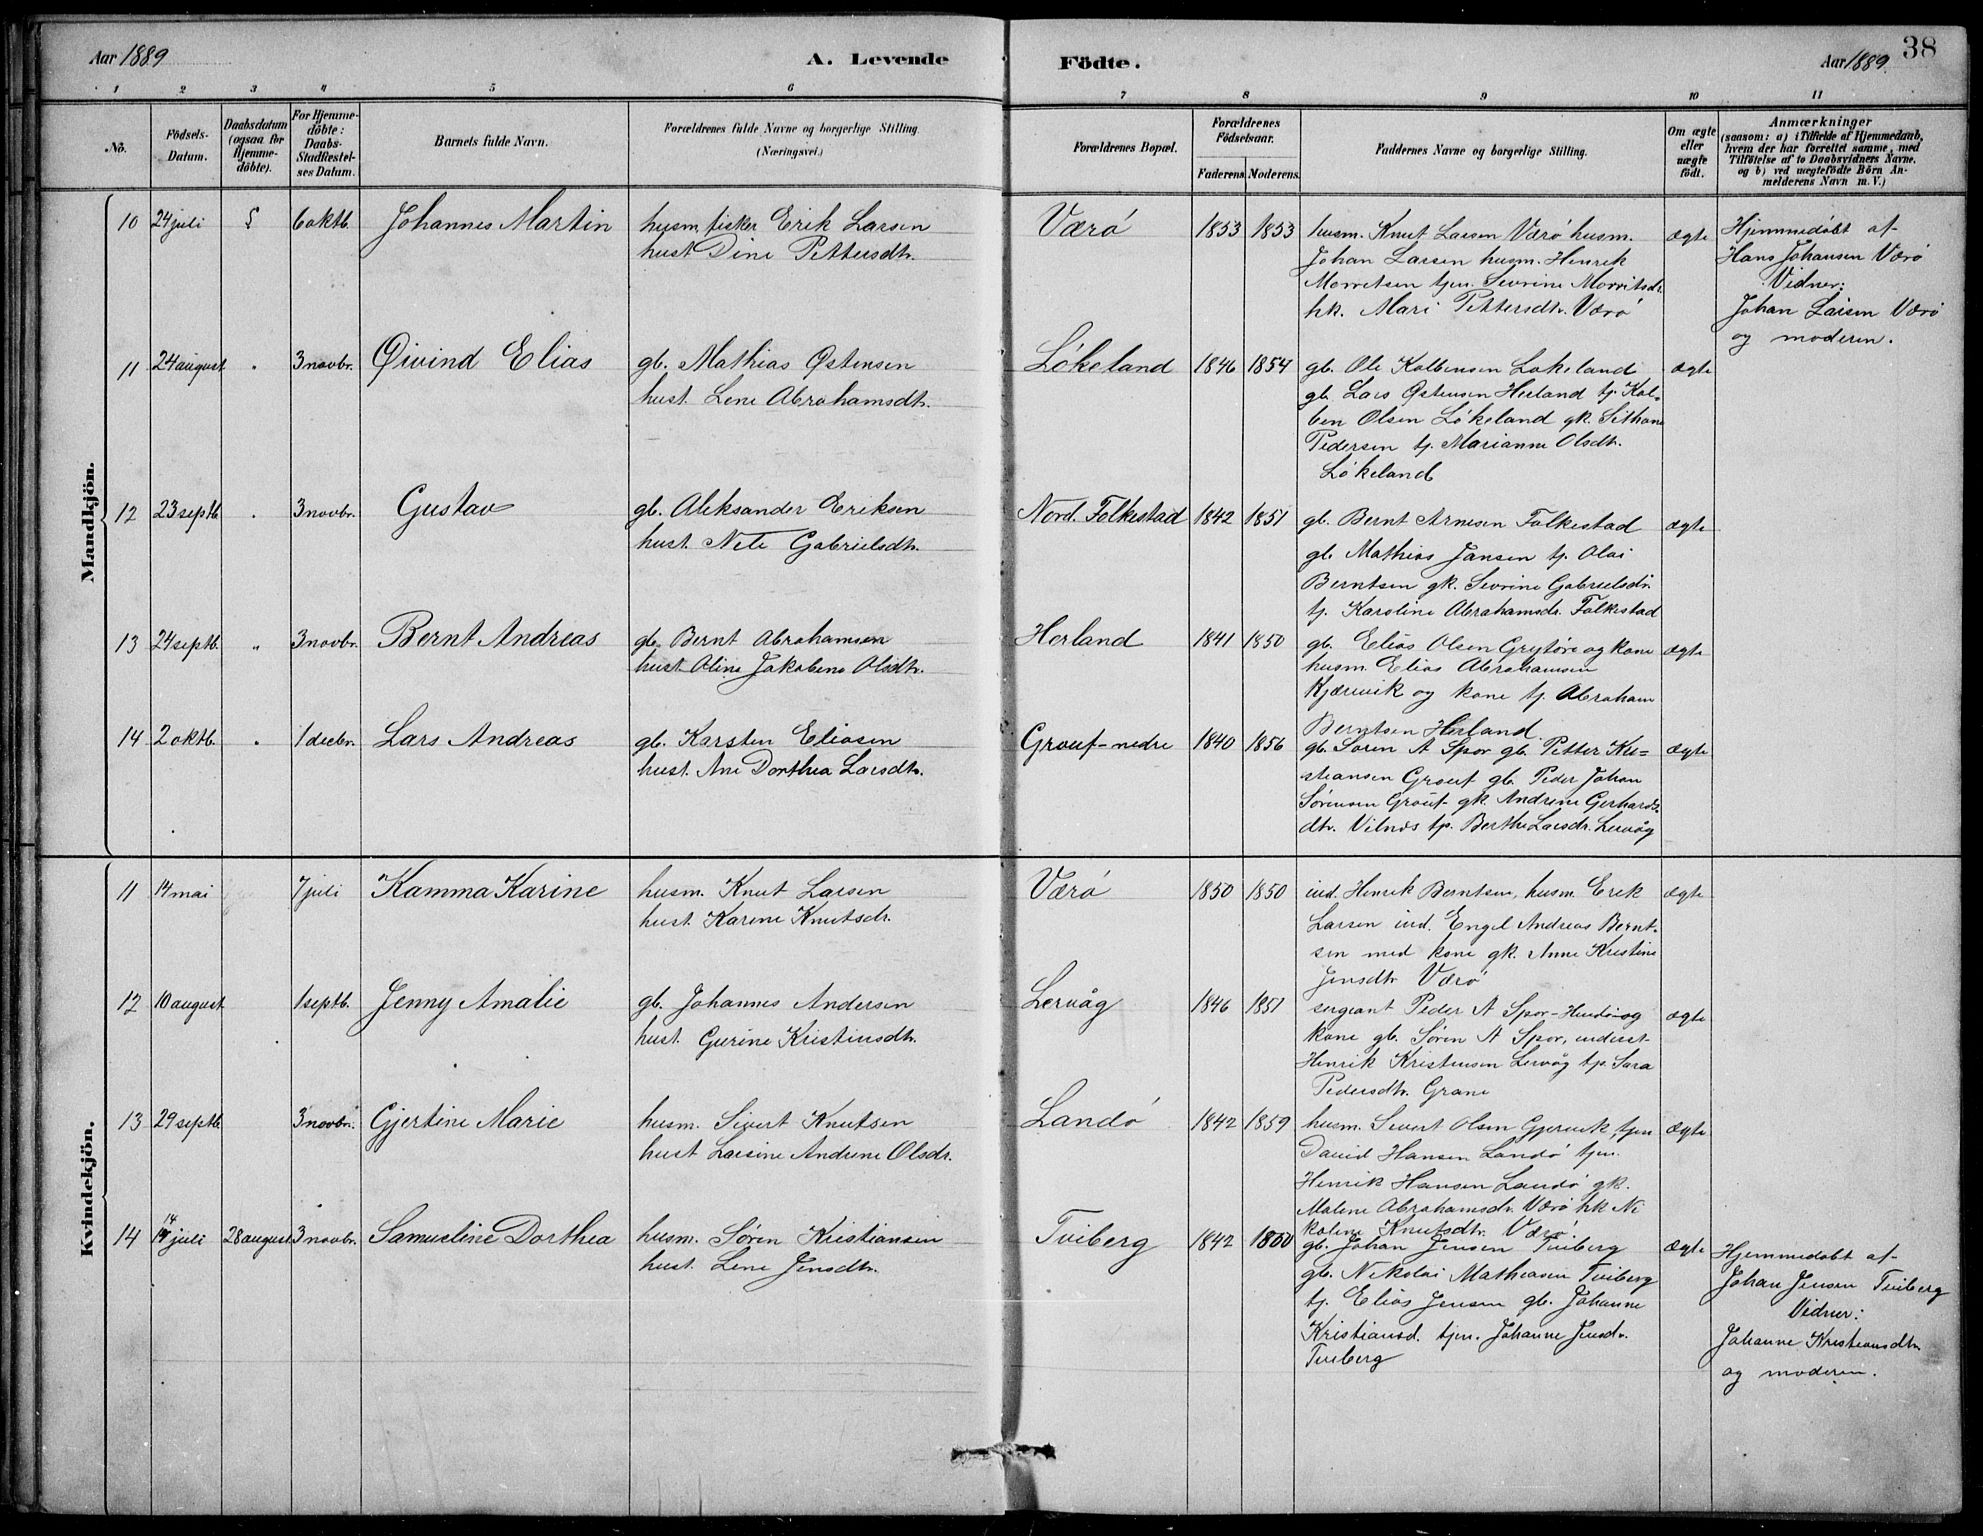 Aar 1889
A. Levende
Födte.
Aar 1889.
38
1 2 3 4 5 6 7 8 9 10 11
No.
Födsels-
Datum.
Daabsdatum
(ogsaa for
Hjemme-
döbte).
For Hjemme-
döbte:
Daabs-
Stadfæstel-
ses Datum.
Barnets fulde Navn.
Forældrenes fulde Navne og borgerlige Stilling.
(Næringsvei.)
Forældrenes Bopæl.
Forældrenes
Födselsaar.
Faderens Moderens.
Faddernes Navne og borgerlige Stilling.
Om ægte
eller
uægte
födt.
Anmærkninger
(saasom: a) i Tilfælde af Hjemmedaab,
hvem der har forrettet samme, med
Tilföielse af to Daabsvidners Navne.
og b) ved uægtefödte Börn An-
melderens Navn m.V.)
Mandkjön.
10 24 juli 6 oktb. Johannes Martin
husm. fisker Erik Larsen
hust Dine Pettersdtr.
Værö 1853 1853
husm. Knut Larsen Værö husm.
Johan Larsen husm. Henrik
Morretsen tjen. Sevrine Morritsdr.
hk. Mari Pettersdtr. Værö
ægte
Hjemmedöbt af
Hans Johansen Værö
Vidner:
Johan Larsen Værö
og moderen.
11 24 august " 3 novbr. Øivind Elias
gb. Mathias Østensen
hust. Lene Abrahamsdtr.
Lökeland 1846 1854
gb. Ole Kolbensen Lökeland
gb. Lars Østensen Herland tj. Kol-
ben Olsen Lökeland gk.
Pedersen tj. Marianne Olsdtr.
Lökeland
ægte
12 23 septb. " 3 novbr. Gustav
gb. Aleksander Eriksen
hust. Nete Gabrielsdtr.
Nord. Folkestad 1842 1851
gb. Bernt Arnesen Folkestad
gb. Mathias Jansen tj. Olai
Berntsen gk. Sevrine Gabrielsdr.
tj. Karoline Abrahamsdr. Folkestad
ægte
13 24 septb. " 3 novbr. Bernt Andreas
gb. Bernt Abrahamsen
hust Oline Jakobine Olsdtr.
Herland 1841 1850
gb. Elias Olsen Grytöre og kone
husm. Elias Abrahamsen
Kjærvik og kone tj. Abraham
Berntsen Herland.
ægte
14 2 oktb. " 1 decbr. Lars Andreas
gb. Karsten Eliasen
hust. Ane Dorthea Larsdtr.
Grouf-nedre 1840 1856
gb. Sören A Spor gb. Petter Kri=
stiansen Grouf gb. Peder Johan
Sörensen Grouf gk. Andrine Gerhards-
dtr. Vilnes tp. Berthe Larsdr. Lervåg
ægte
Kvindekjön.
11 14 mai 7 juli Kamma Karine
husm. Knut Larsen
hust. Karine Knutsdr.
Værö 1850 1850
ind. Henrik Berntsen, husm. Erik
Larsen ind. Engel Andreas Bernt-
sen med kone gk. Anne Kristine
Jensdtr Værö
ægte
12 10 august 1 septb. Jenny Amalie
gb. Johannes Andersen
hust. Gurine Kristensdtr.
Lervåg 1846 1851
sergeant Peder A Spor og
kone gb. Sören A Spor, inderst
Henrik Kristensen Lervåg tp. Sara
Pedersdtr. Grane
ægte
13 29 septb 3 novbr. Gjertine Marie
husm. Sivert Knutsen
hust Larsine Andrine Olsdr.
Landö 1842 1859
husm. Sivert Olsen Gjervik, tjen
David Hansen Landö tjen.
Henrik Hansen Landö gk.
Malene Abrahamsdr. Værö hk Ni
koline Knutsdtr. Værö.
ægte
14 14 juli 28 august 3 novbr. Samueline Dorthea
husm. Sören Kristiansen
hust. Lene Jensdtr.
Tviberg 1842
gb. Johan Jensen Tviberg
gb. Nikolai Mathiasen Tviberg
tj. Elias Jensen gb. Johanne
Kristiansd. tjen. Johanne Jensdr.
Tviberg
ægte
Hjemmedöbt af
Johan Jensen Tviberg
Vidner:
Johanne Kristiansdtr.
og moderen.